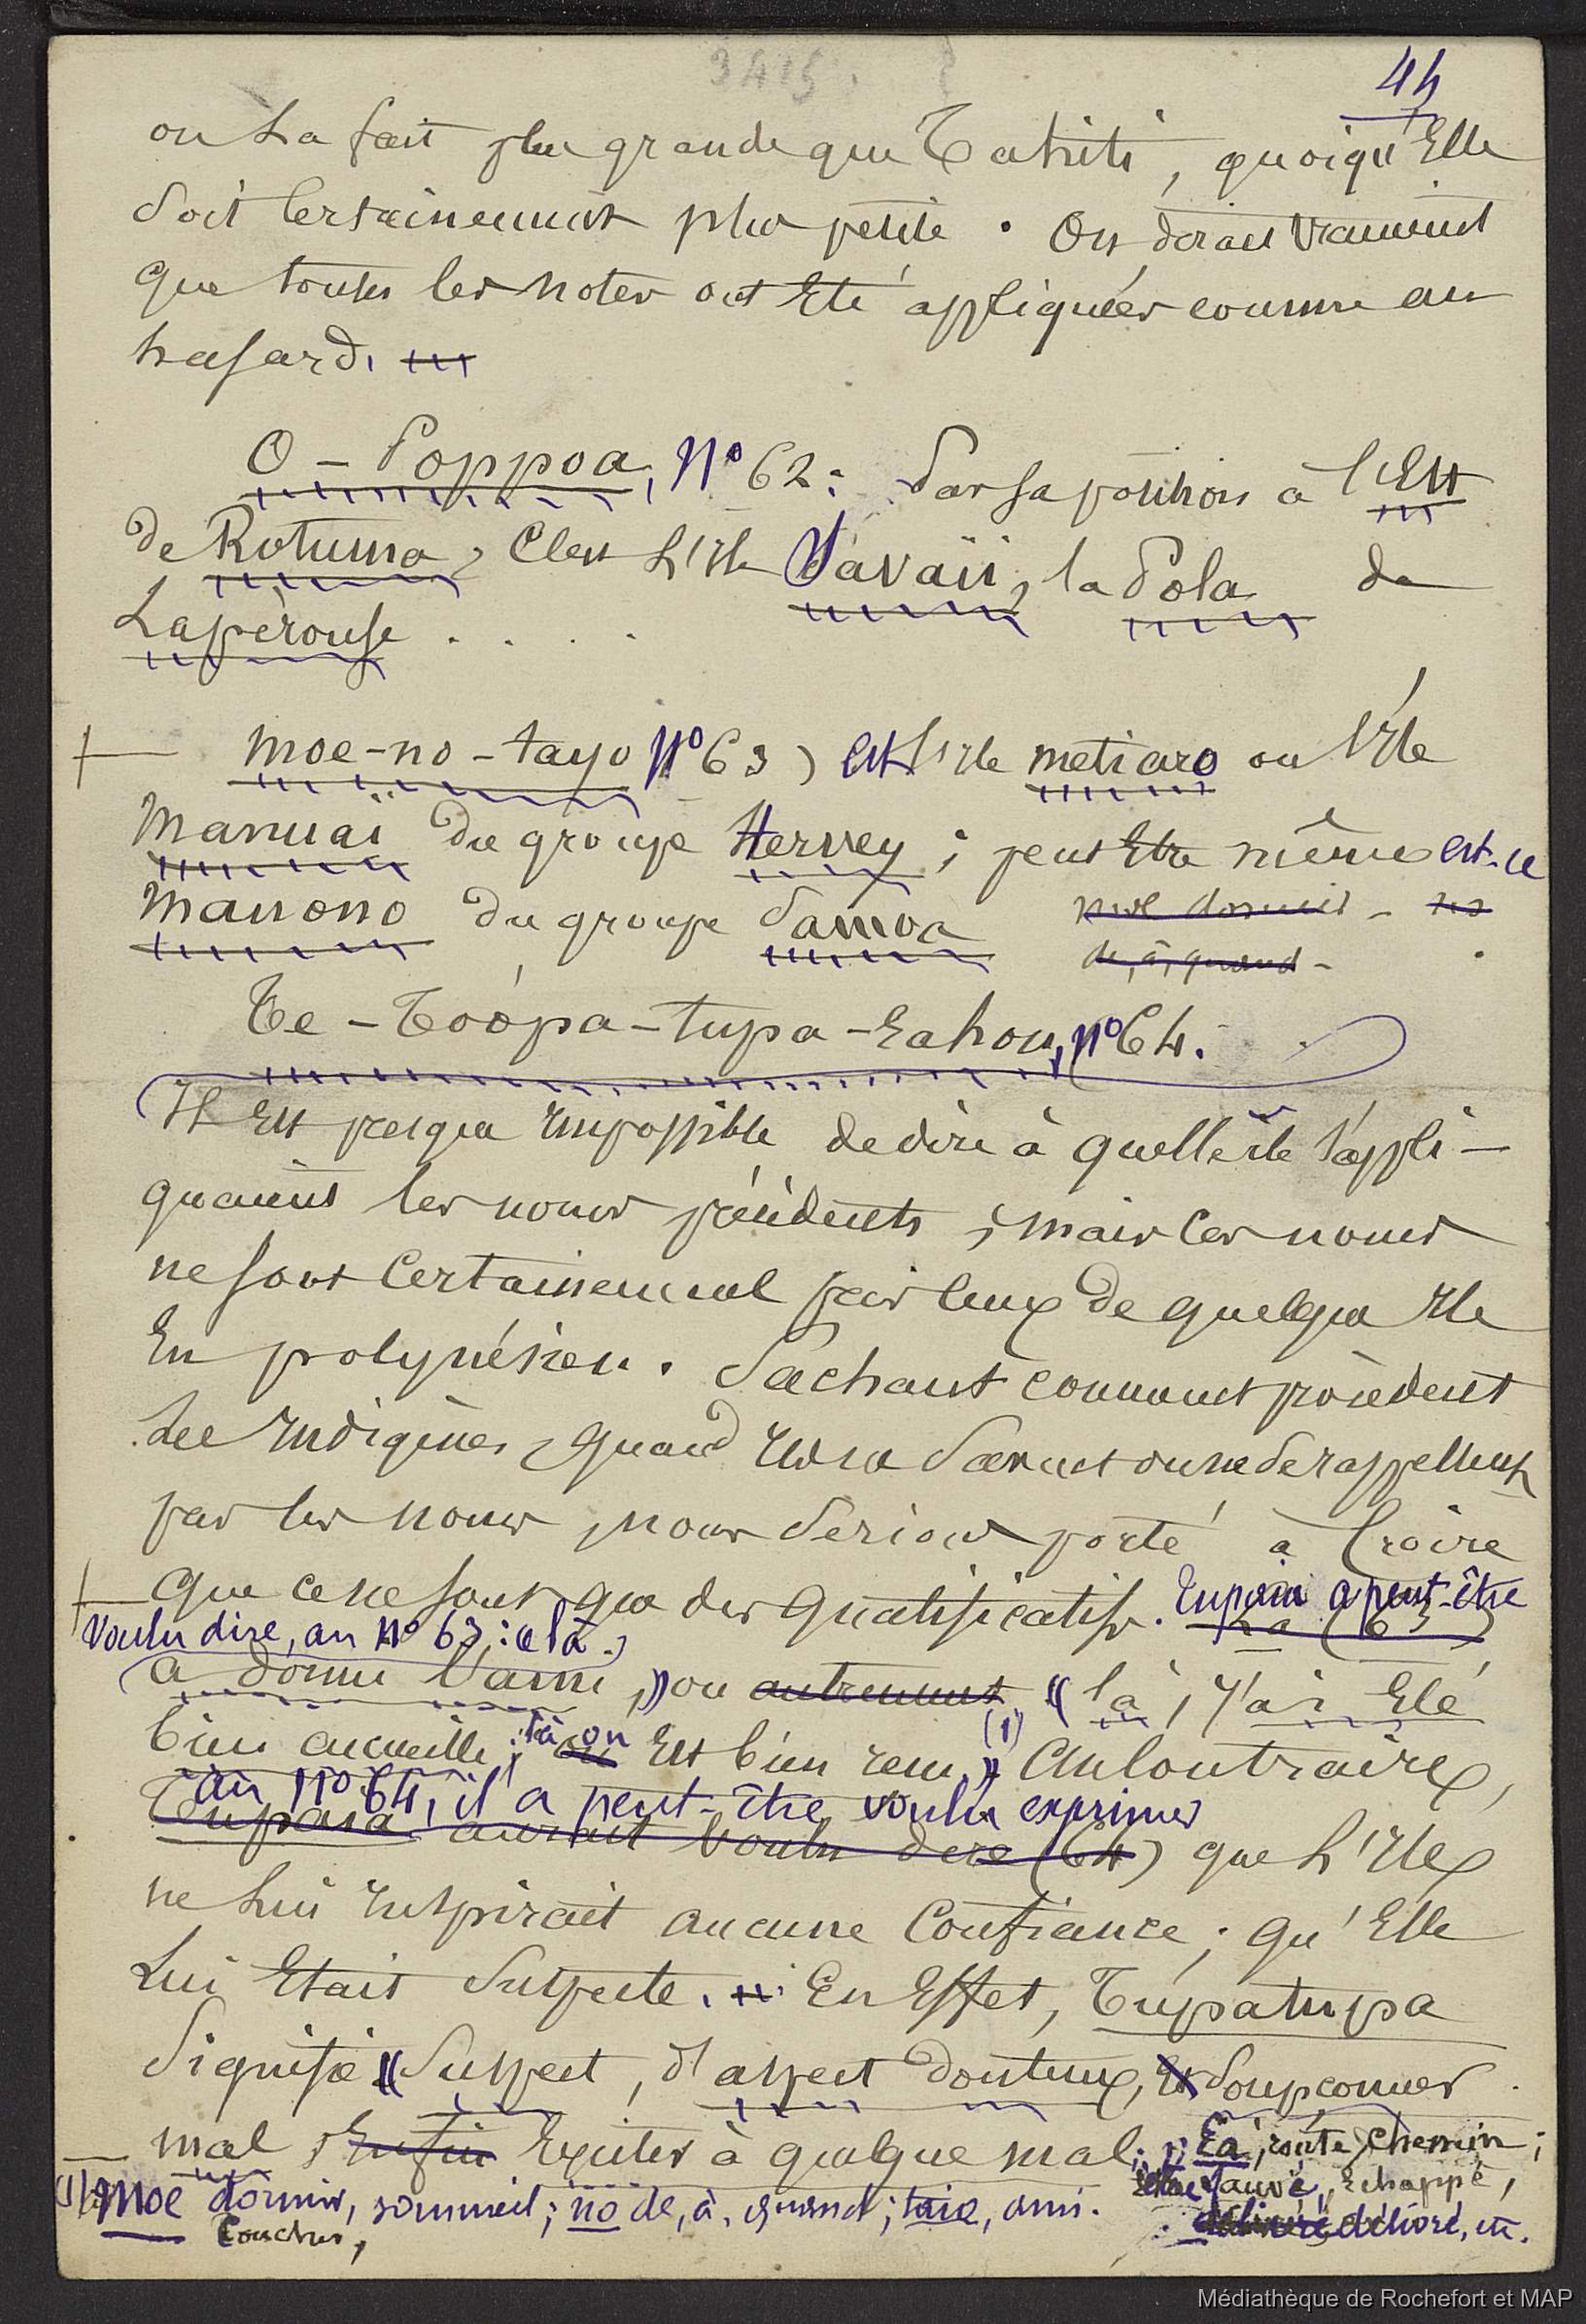 3415.
44
on la fait plus grande que Tahiti, quoiqu'Elle
soit certainement plus petite. On dirait vraiment
que toutes les notes ont Eté appliquées comme au
hasard.
O-Poppoa, N° 62: Par sa position à l'Est
de Rotuma, c'est l'Ile Savaii, la Pola de
Lapérouse . . . .
moe-no-tayo N° 63) est l'Ile metiaro ou l'Ile
Manuaï du groupe Hervey; peut Etre même est-ce
Manono du groupe Samoa moe dormir - no
de, à, quand -
Te-Toopa-tupa-Eahou, n° 64.
Il Est presque Impossible de dire à quelle île s'appli-
quaient les noms précédents, mais ces noms
ne sont certainement pas ceux de quelque Ile
En polynésien. Sachant comment procèdent
Les Indigènes, quand Ils ne savent ou ne se rappellent
pas les noms, nous serions porté à Croire
que ce ne sont que des qualificatifs. Tupaia a peut-être
voulu dire, au N° 63, : « là
a dormi l'ami, » ou autrement « là, j'ai Eté
bien accueilli; là on Est bien reçu » (1) Au Contraire,
au N° 64, il a peut-être voulu exprimer
Tupaia aurait voulu dire (64) que l'Ile
ne lui Inspirait aucune Confiance; qu'Elle
Lui Etait Suspecte. En Effet, Tupatupa
Signifie « Suspect, d'aspect douteux, Et Soupçonner
mal, Enfin Exciter à quelque mal; Ea, route, chemin;
sauvé, Echappé,
délivré, etc.
(1) Moe dormir, sommeil; no de, à, quand; taio, ami.
Coucher,
Médiathèque de Rochefort et MAP